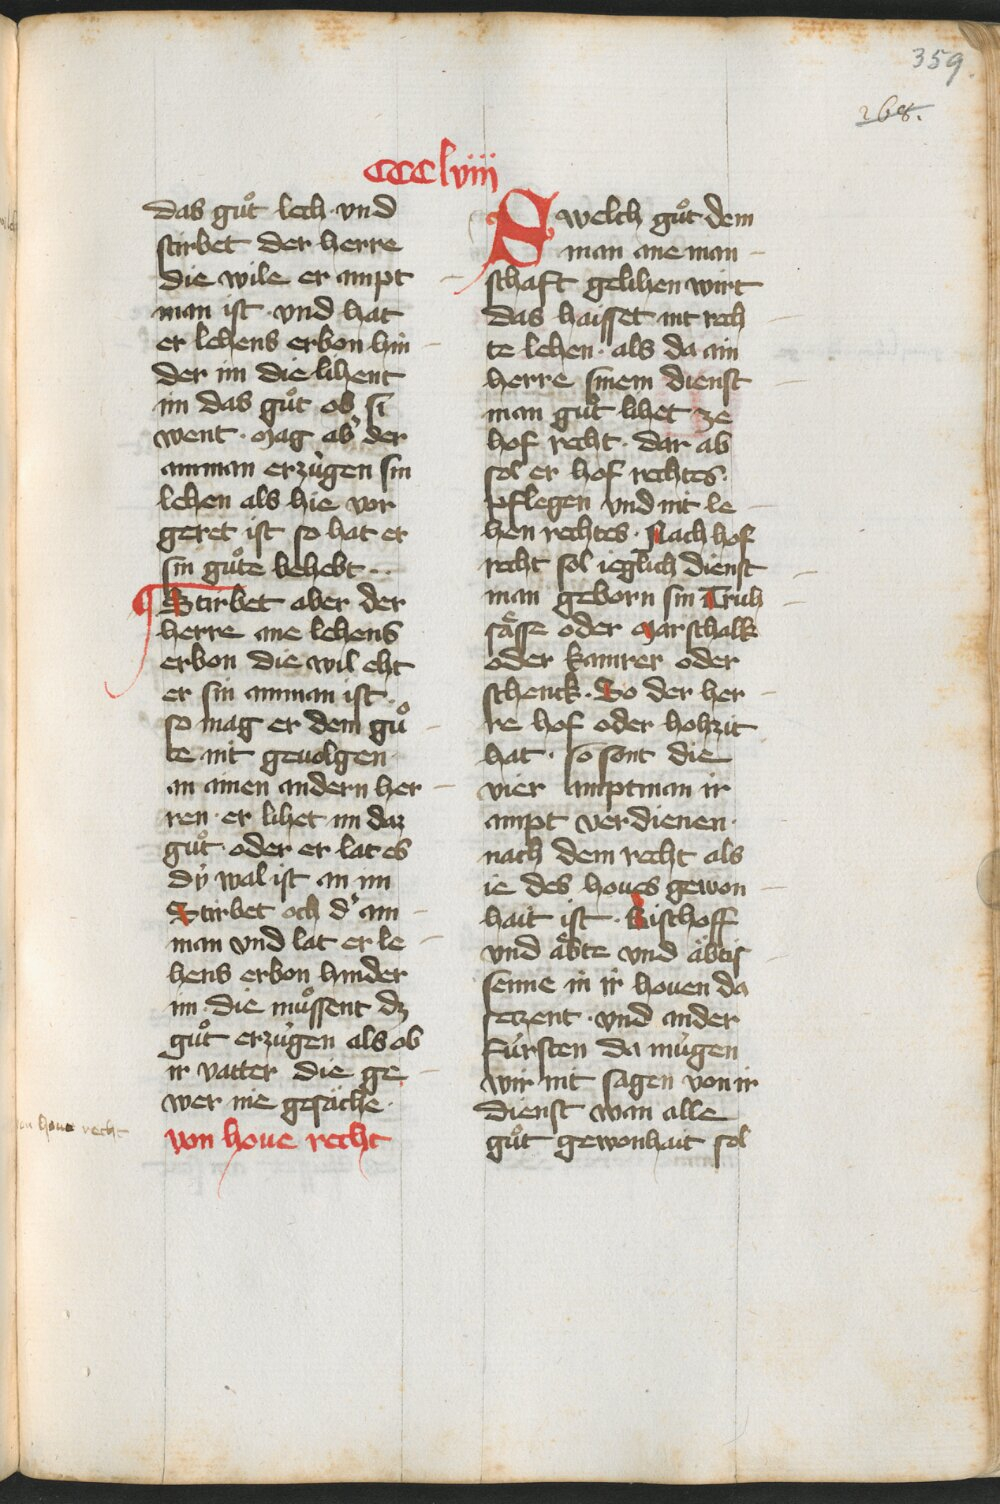 359.
268.
CCClviii
das guͦt lech · vnd
stirbet der herre
die wile er ampt
man ist · vnd hat
er lehens erbon hin
der im die lihent
im das guͦt ob si
went · mag ab der
amman erzúgen sin
lehen als hie vor
geret ist so hat er
sin guͦte behebt ··
Stirbet aber der
herre ane lehens
erbon die wil eht
er sin amman ist ·
so mag er dem guͦ
te nit geuolgen
an ainen andern her
ren · er lihet im daz
guͦt · oder er lat es
dú wal ist an im
Stirbet och dʼ am
man vnd lat er le
hens erbon hinder
im · die muͦssent dz
guͦt erzúgen als ob
ir vatter die ge
wer nie gesäche ·
von houe recht
von houe recht
Swelch guͦt dem
man ane man
schaft gelihen wirt
das haisset nit rech
te lehen · als da ain
herre sinem dienst
man guͦt lihet ze
hof recht · dar ab
sol er hof rechtes ·
pflegen vnd nit le
hen rechtes · Nach hof
recht sol ieglich dienst
man geborn sin Truh
säsſe oder Marschalk
oder kamrer oder
schenck · So der her
re hof oder hohzit
hat · so sont die
vier amptman ir
ampt verdienen ·
nach dem recht als
ie des houes gewon
hait ist · Bischoff
vnd äbte vnd äbtis
senne in ir houen da
setzent · vnd ander
fúrsten da múgen
wir nit sagen von ir
dienst wan alle
guͦt gewonhait sol